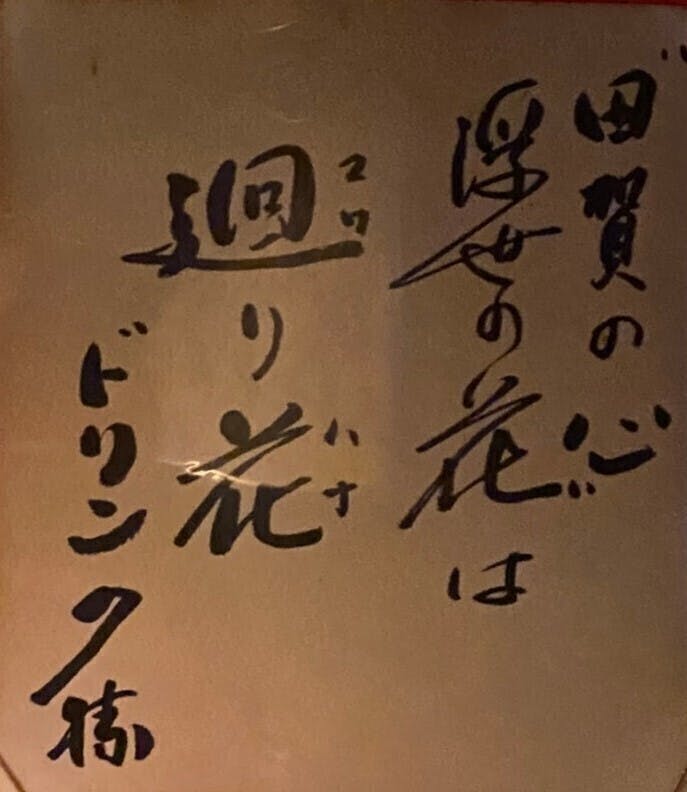 〝田賀の心〟
浮世の花は
廻り花
マワ
ハナ
ドリンク